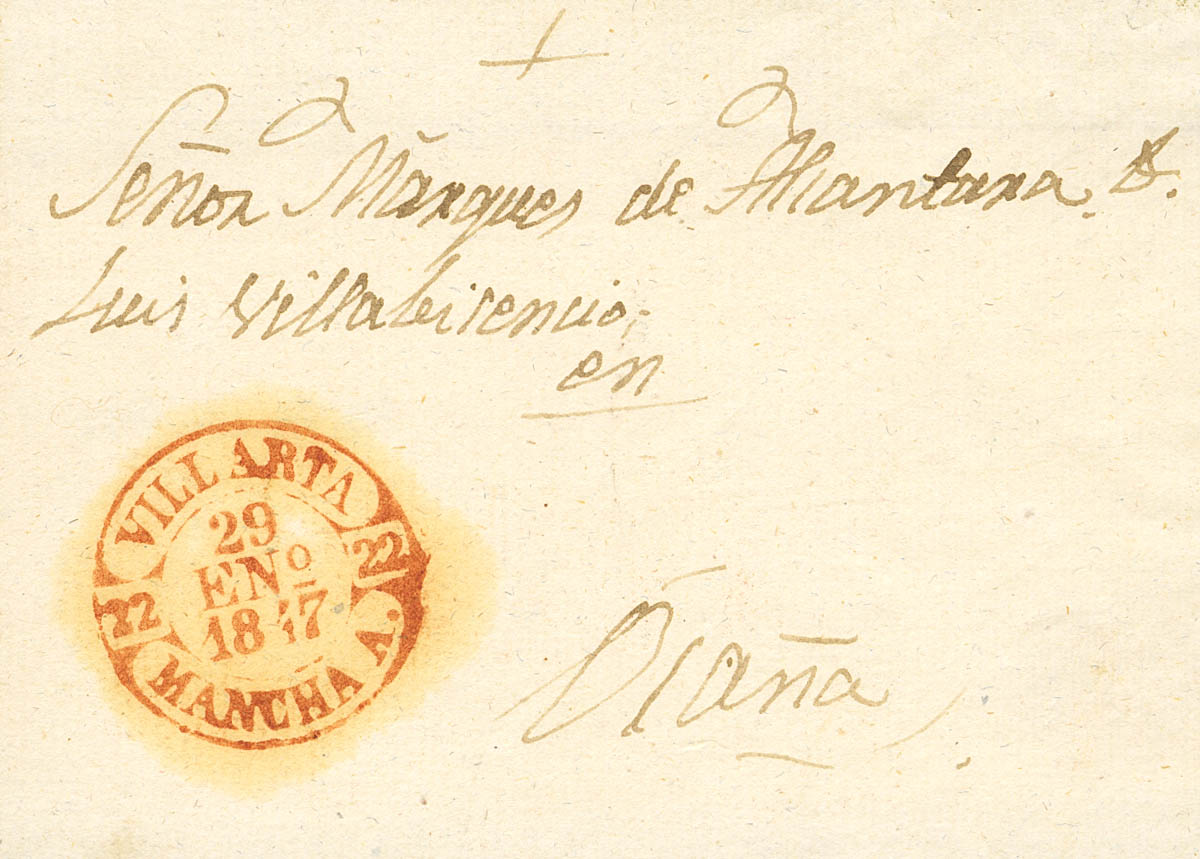 Señor Marques de Alcantara. D.
Luis Villabisencio,
en
VILLARTA
22
29
22
ENº
1847
MANCHA A.
Ocaña